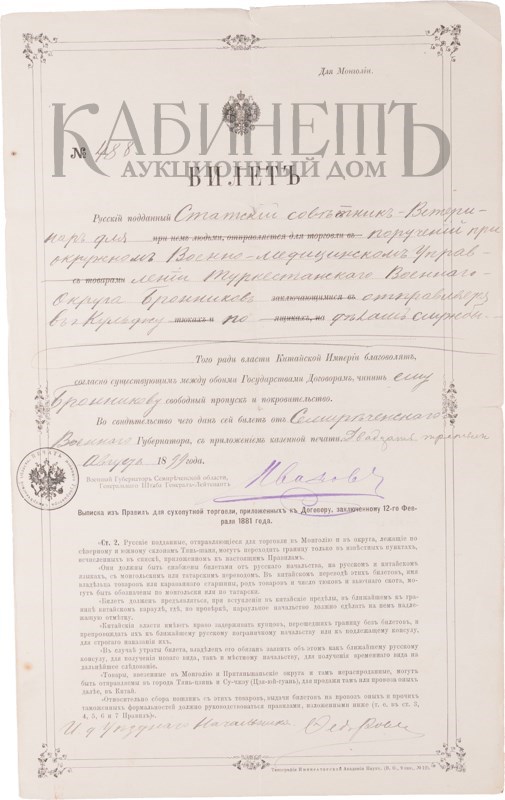 Для Монголiи.
КАБИНЕТЪ
АУКЦИОННЫЙ ДОМ
№ 488
БИЛЕТЪ
Русскiй подданный Статскiй совѣтник-Ветери-
наръ для при немъ людьми, отправляется для торговли въ порученiй при
окружномъ Военно-Медицинскомъ Управ-
съ товарами ленiи Туркестанскаго Военнаго
Округа Бронниковъ заключающимися въ отправляется
въ г. Кульджу тюкахъ и по ящикахъ, на дѣламъ службы
Того ради власти Китайской Имперiи благоволятъ,
согласно существующимъ между обоими Государствами Договорамъ, чинить ему
Бронникову свободный пропускъ и покровительство.
Во свидѣтельство чего данъ сей билетъ отъ Семирѣченскаго
Военнаго Губернатора, съ приложенiемъ казенной печати. Двадцать третьяго
Августа 1899 года.
Военный Губернаторъ Семирѣченской области,
Генеральнаго Штаба Генералъ-Лейтенантъ Ивановъ
Выписка изъ Правилъ для сухопутной торговли, приложенныхъ къ Договору, заключенному 12-го Фев-
раля 1881 года.
«Ст. 2. Русскiе подданные, отправляющiеся для торговли въ Монголiю и въ округа, лежащiе по
сѣверному и южному склонамъ Тянь-шаня, могутъ переходить границу только въ извѣстныхъ пунктахъ,
исчисленныхъ въ спискѣ, приложенномъ къ настоящимъ Правиламъ.
«Они должны быть снабжены билетами отъ русскаго начальства, на русскомъ и китайскомъ
языкахъ, съ монгольскимъ или татарскимъ переводомъ. Въ китайскомъ переводѣ этихъ билетовъ, имя
владѣльца товаровъ или караваннаго старшины, родъ товаровъ и число тюковъ и наличнаго скота, мо-
гутъ быть обозначены по монгольски или по татарски.
«Билетъ долженъ предъявляться, при вступленiи въ китайскiе предѣлы, въ ближайшемъ къ гра-
ницѣ китайскомъ караулѣ, гдѣ, по провѣркѣ, караульное начальство должно сдѣлать на немъ надле-
жащую отмѣтку.
«Китайскiя власти имѣютъ право задерживать купцовъ, перешедшихъ границу безъ билетовъ, и
препровождать ихъ къ ближайшему русскому пограничному начальству или къ надлежащему консулу,
для строгаго наказанiя ихъ.
«Въ случаѣ утраты билета, владѣлецъ его обязанъ заявить объ этомъ какъ ближайшему русскому
консулу, для полученiя новаго вида, такъ и мѣстному начальству, для полученiя временнаго вида на
дальнѣйшее слѣдованiе.
«Товары, ввезенные въ Монголiю и Притяньшанскiе округа и тамъ нераспроданные, могутъ
быть отправляемы въ города Тянь-цзинь и Су-чжоу (Цзя-юй-гуань), для продажи тамъ или провоза оныхъ
далѣе, въ Китай.
«Относительно сбора пошлинъ съ этихъ товаровъ, выдачи билетовъ на провозъ оныхъ и прочихъ
таможенныхъ формальностей должно руководствоваться правилами, изложенными ниже (т. е. въ ст. 3,
4, 5, 6 и 7 Правилъ)».
И. д. Уѣзднаго Начальника